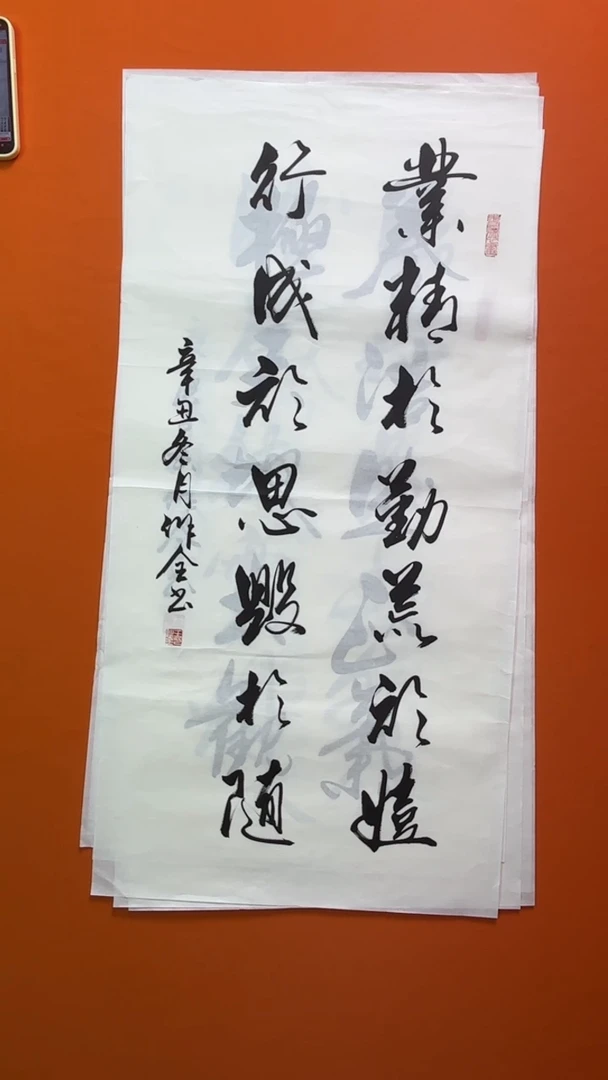 業精於勤荒於嬉
行成於思毀於随
辛丑冬月作全书